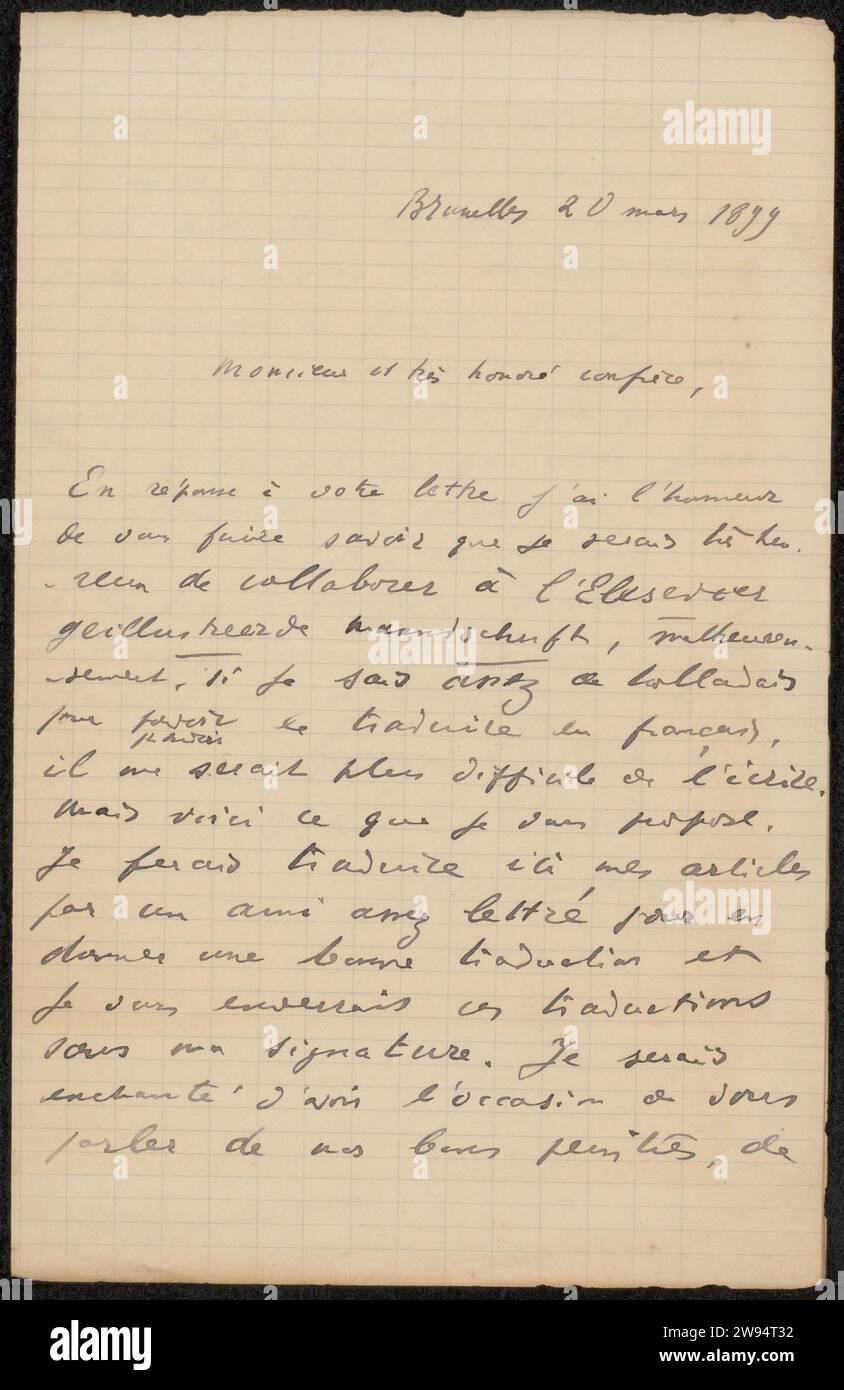 Bruxelles 20 mars 1899
Monsieur et très honoré confrère,
En réponse à votre lettre j'ai l'honneur
de vous faire savoir que je serais très heu-
-reux de collaborer à l'Elsevier
geillustreerde maandschrift, malheureu-
-sement, si je sais assez de hollandais
pour pouvoir le traduire en français,
pouvoir
il me serait plus difficile de l'écrire.
Mais voici ce que je vous propose.
Je ferais traduire ici mes articles
par un ami assez lettré pour en
donner une bonne traduction et
je vous enverrais ces traductions
sous ma signature. Je serais
enchanté d'avoir l'occasion de vous
parler de nos bons peintres, de
alamy
a
alamy
Image ID: 2W94T32
www.alamy.com